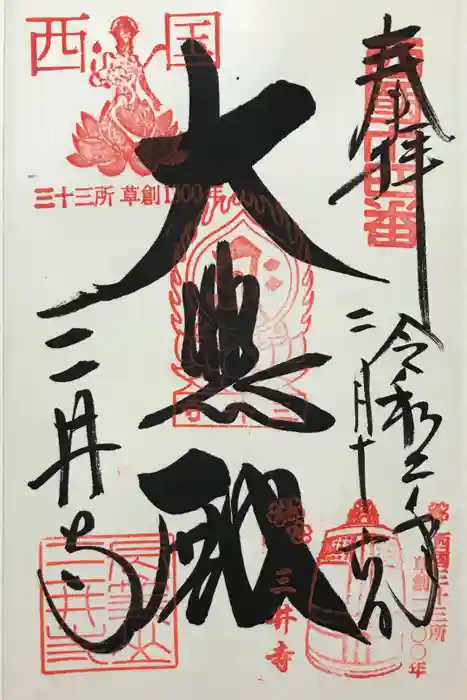 奉拝
西国十四番
令和二年
二月十六日
大悲殿
三井寺
西国
三十三所 草創1300年
三井寺
西国三十三所
草創一三〇〇年